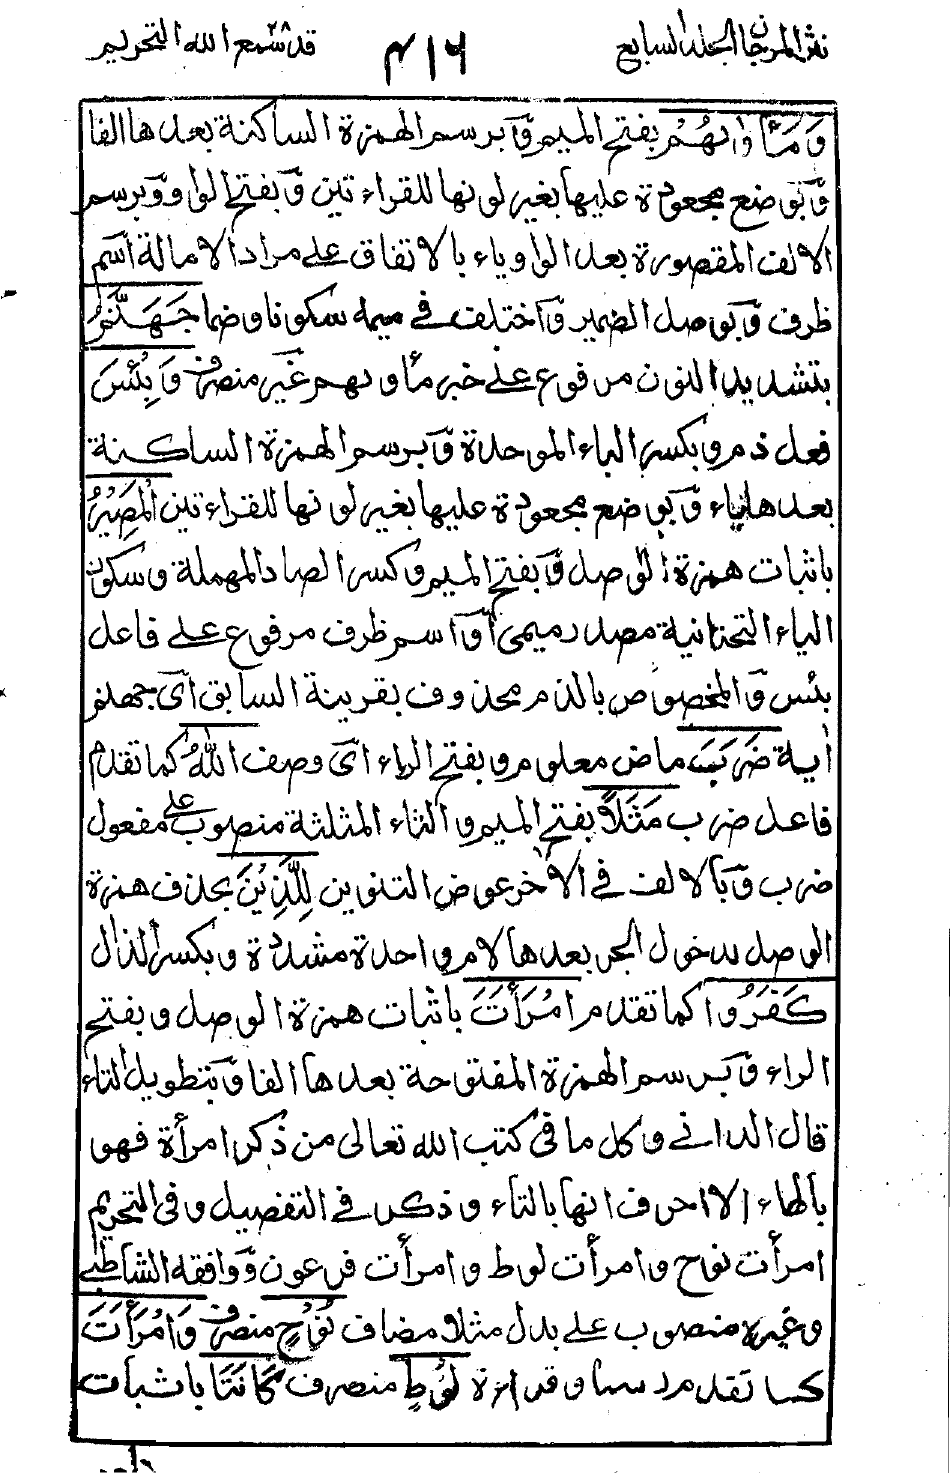 نثر المرجان الجلد السابع ٤١٦ قد سمع الله ٢٨ التحريم
وَمَأْوٰىهُمْ بفتح الميم وبرسم الهمزة الساكنة بعدها الفا
وبوضع مجعودة عليها بغير لونها للقراءتين وبفتح الواو وبرسم
الالف المقصورة بعد الواو ياء بالاتفاق على مراد الامالة اسم
ظرف وبوصل الضمير واختلف في ميمه سكونا وضما جَهَنَّمُ
بتشديد النون مرفوع على خبر مأوىهم غير منصرف وَبِئْسَ
فعل ذم وبكسر الباء الموحدة وبرسم الهمزة الساكنة
بعدها ياء وبوضع مجعودة عليها بغير لونها للقراءتين الْمَصِيْرُ
باثبات همزة الوصل وبفتح الميم وكسر الصاد المهملة وسكون
الياء التحتانية مصدر ميمى او اسم ظرف مرفوع على فاعل
بئس والمخصوص بالذم محذوف بقرينة السابق اى جهنم
اٰية ضَرَبَ ماض معلوم وبفتح الراء اى وصف اللّٰهُ كما تقدم
فاعل ضرب مَثَلًا بفتح الميم والثاء المثلثة منصوب على مفعول
ضرب وبالالف في الاٰخر عوض التنوين لِلَّذِيْنَ بحذف همزة
الوصل لدخول الجر بعدها لام واحدة مشددة وبكسر الذال
كَفَرُوا كما تقدم امْرَأَتَ باثبات همزة الوصل وبفتح
الراء وبرسم الهمزة المفتوحة بعدها الفا وبتطويل التاء
قال الدانى وكل ما فى كتب الله تعالى من ذكر امرأة فهو
بالهاء الا احرف انها بالتاء وذكر فى التفصيل وفى التحريم
امرأت نوح وامرأت لوط وامرأت فرعون ووافقه الشاطبى
وغيره منصوب على بدل مثلا مضاف نُوْحٍ منصرف وَامْرَأَتَ
كما تقدم رسما وقراءة لُوْطٍ منصرف كَانَتَا باثبات